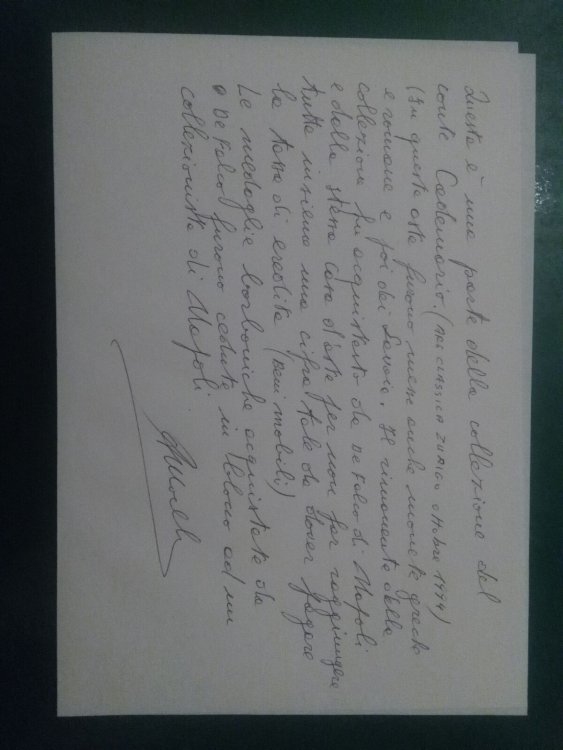 Questa è una parte della collezione del
conte Cademario. (ARS CLASSICA ZURIGO ottobre 1994)
(In questa asta furono messe anche monete greche
e romane e poi dei Savoia. Il rimanente della
collezione fu acquistato da De Falco di Napoli
e dalla stessa Casa d'aste per non far raggiungere
tutte insieme una cifra tale da dover pagare
la tassa di eredità (beni mobili)
Le medaglie borboniche acquistate da
De Falco furono cedute in blocco ad un
collezionista di Napoli